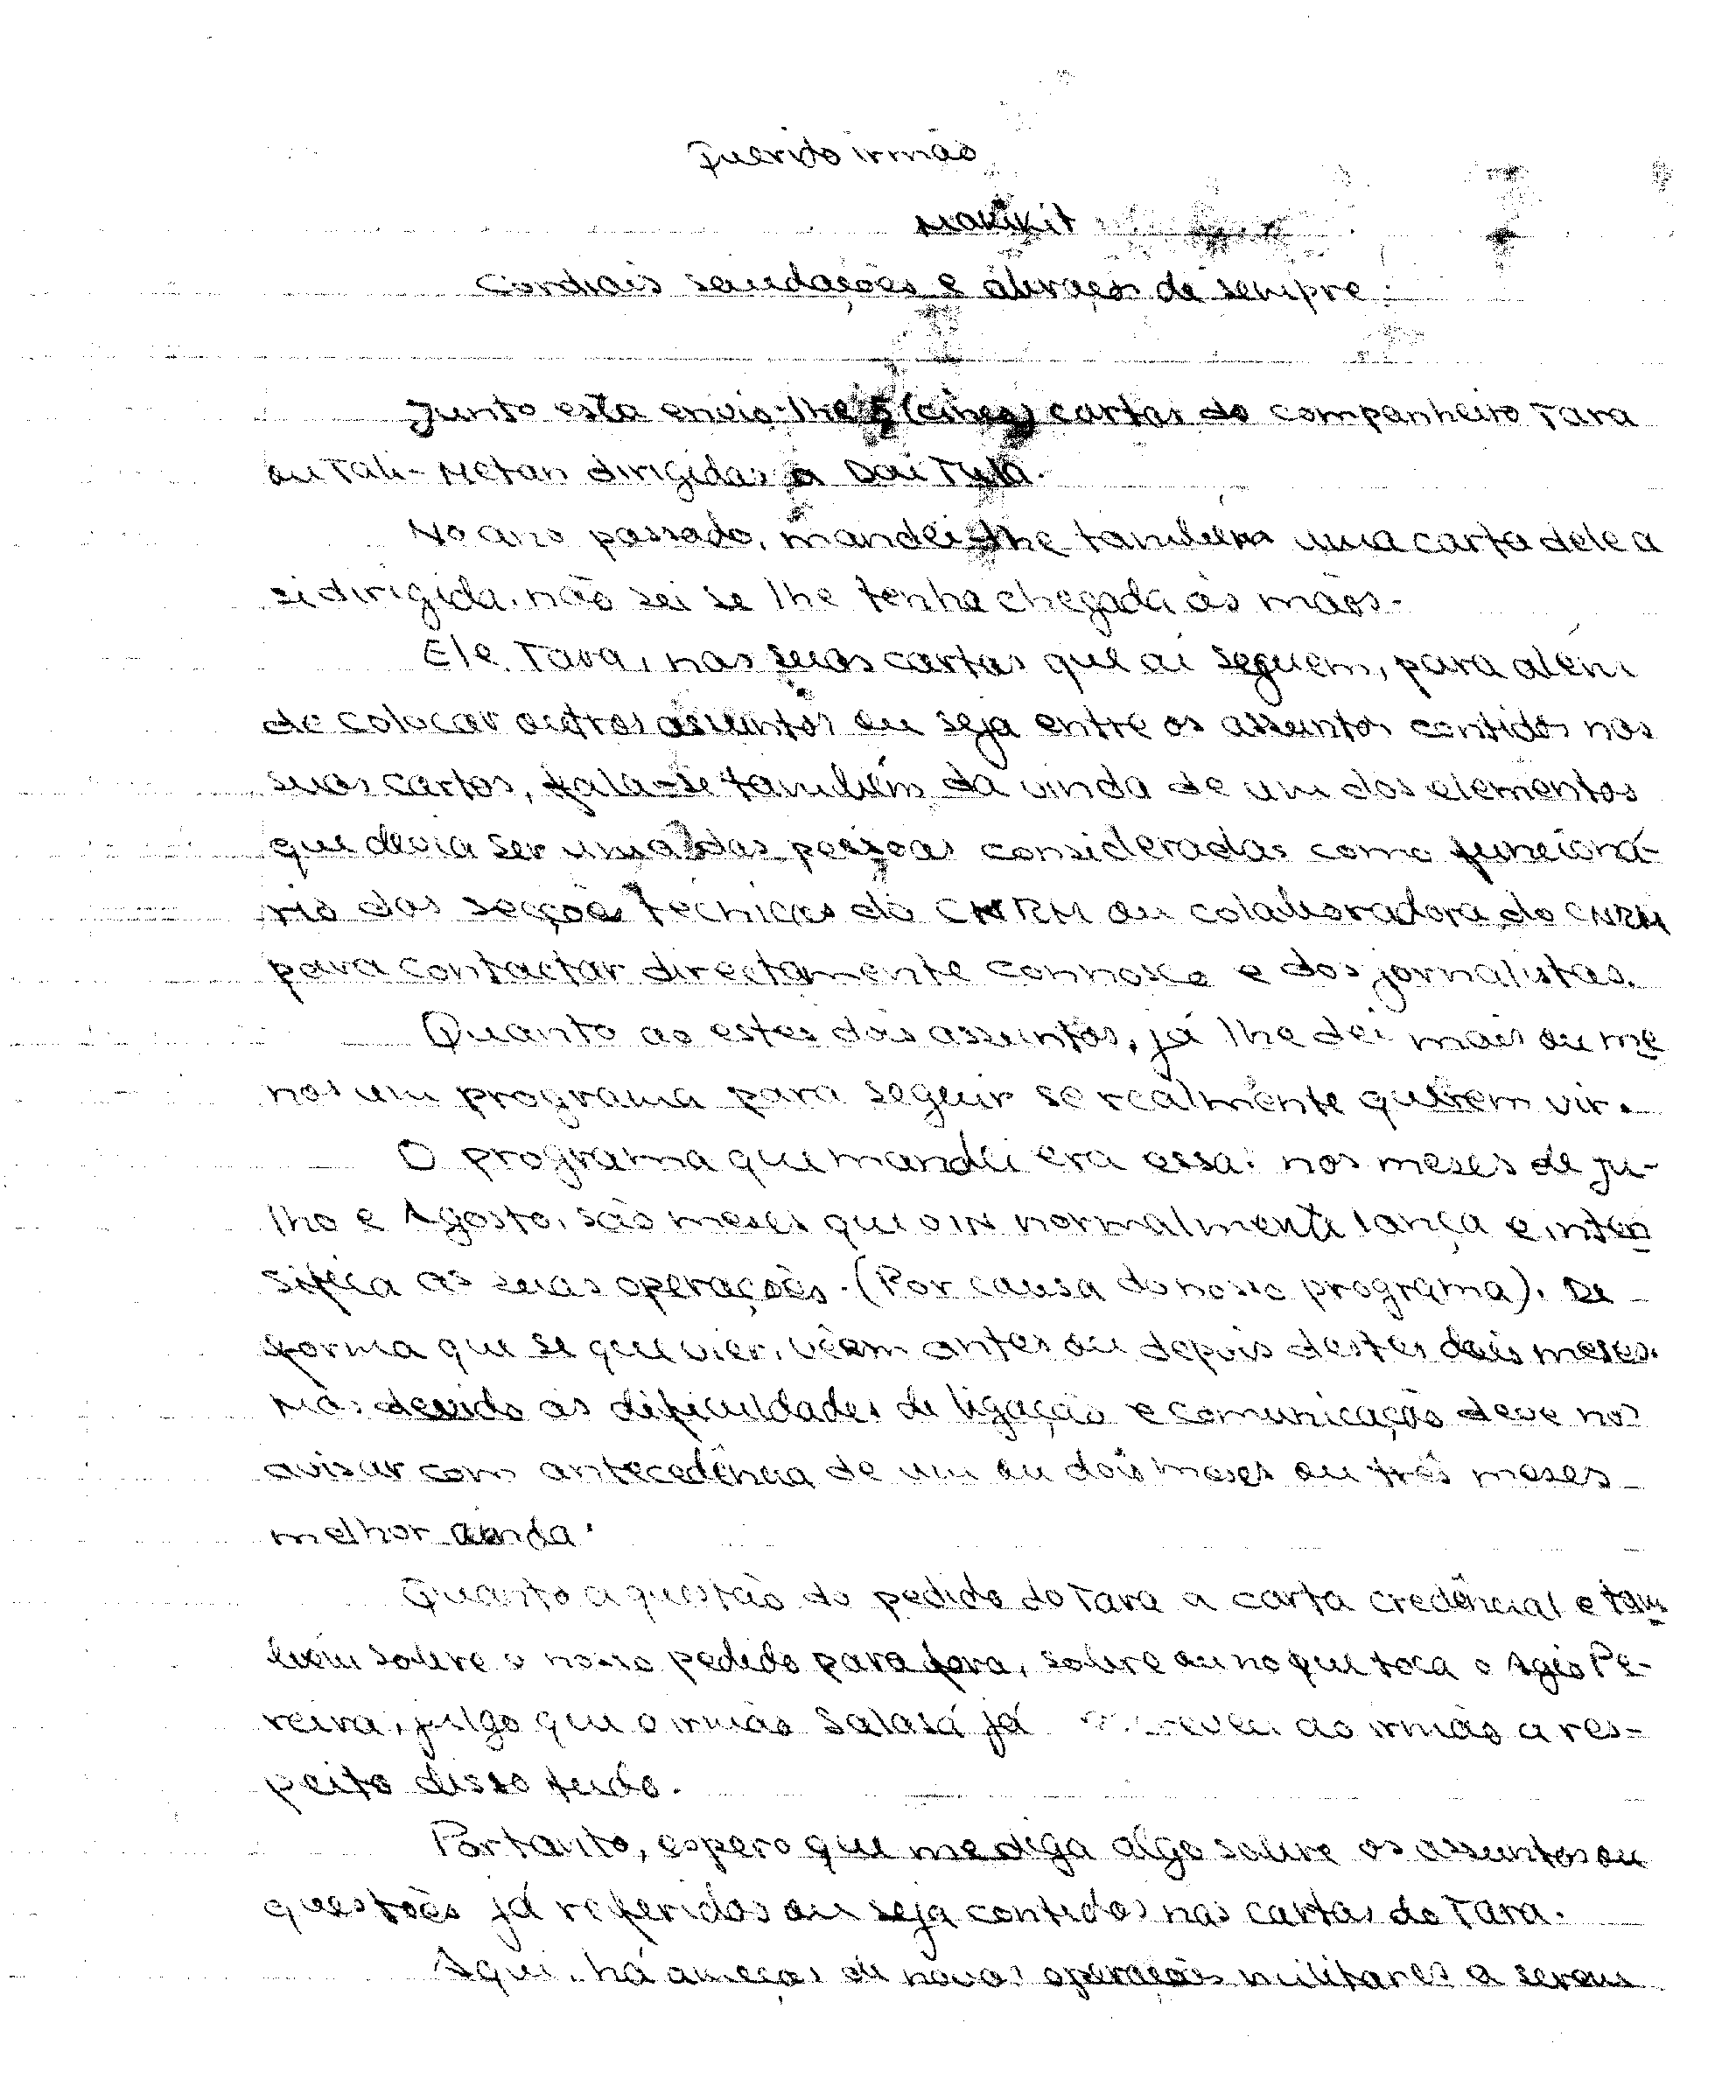 Querido irmão
Maukit
Cordiais saudações e abraços de sempre.
Junto esta envio-lhe 5 (cinco) cartas do companheiro Tara
ou Tali-Metan dirigidas a Dai Tula.
No ano passado, mandei-lhe também uma carta dele a
si dirigida, não sei se lhe tenha chegada às mãos.
Ele, Tara, nas suas cartas que aí seguem, para além
de colocar outros assuntos ou seja entre os assuntos contidos nas
suas cartas, fala-se também da vinda de um dos elementos
que devia ser uma das pessoas consideradas como funcioná-
rio das secções técnicas do CNRM ou colaboradora do CNRM
para contactar directamente connosco e dos jornalistas.
Quanto ao estes dois assuntos, já lhe dei mais ou me
nos um programa para seguir se realmente querem vir.
O programa que mandei era essa: nos meses de Ju-
lho e Agosto, são meses que o IN normalmente lança e inten
sifica as suas operações. (Por causa do nosso programa). De
forma que se que vier, vêem antes ou depois destes dois meses.
Mas devido as dificuldades de ligação e comunicação deve nos
avisar com antecedência de um ou dois meses ou três meses
melhor ainda.
Quanto a questão do pedido do Tara a carta credêncial e tam
bém sobre o nosso pedido para fora, sobre ou no que toca o Agio Pe-
reira, julgo que o irmão Salasá já ao irmão a res-
peito disso tudo.
Portanto, espero que me diga algo sobre os assuntos ou
questões já referidos ou seja contidos nas cartas do Tara.
Aqui, há ameças de novas operações militares a serem